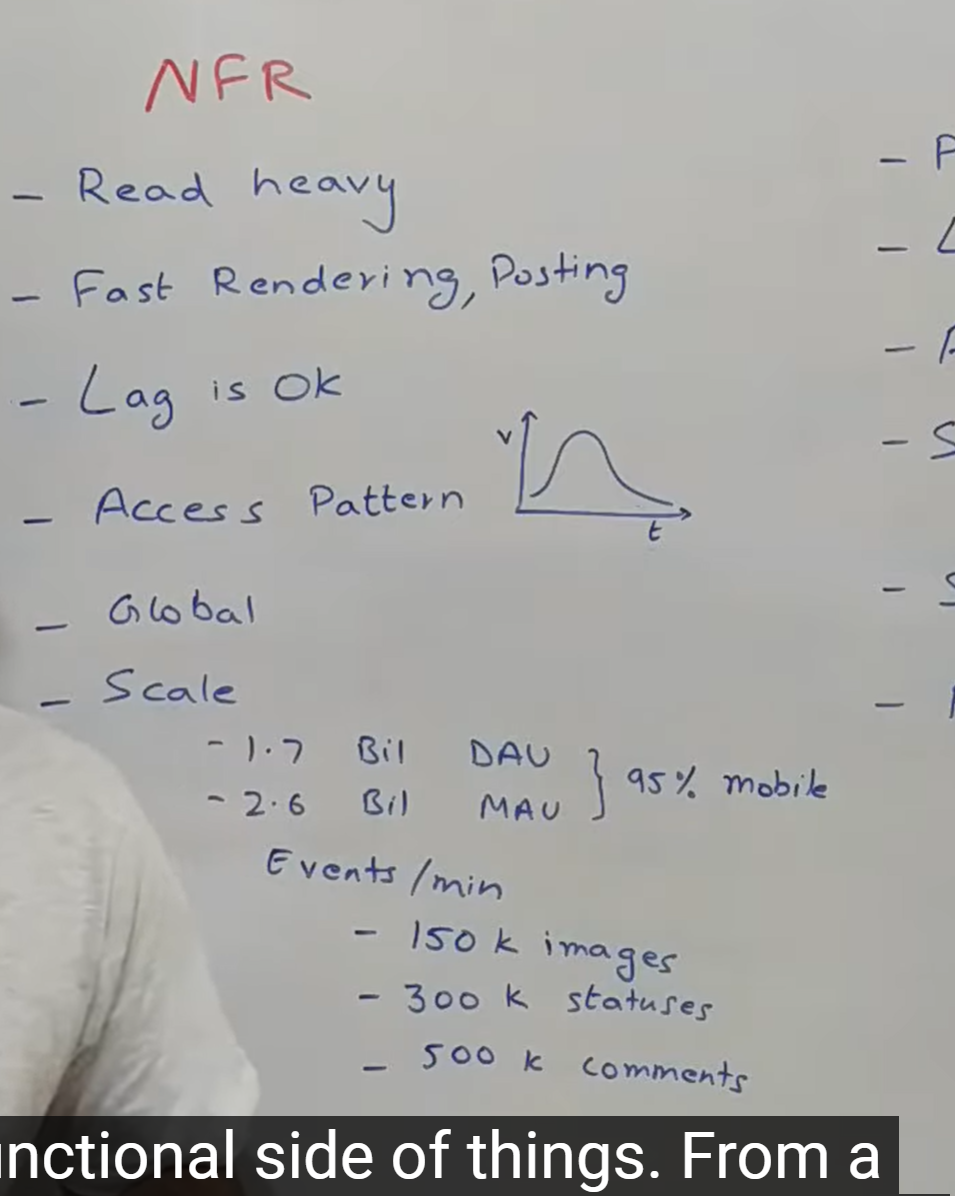 NFR
- Read heavy
- Fast Rendering, Posting
- Lag is Ok
- Access Pattern
v
t
- Global
- Scale
- 1.7 Bil DAU
- 2.6 Bil MAU
} 95% mobile
Events/min
- 150 k images
- 300 k statuses
- 500 k comments
unctional side of things. From a